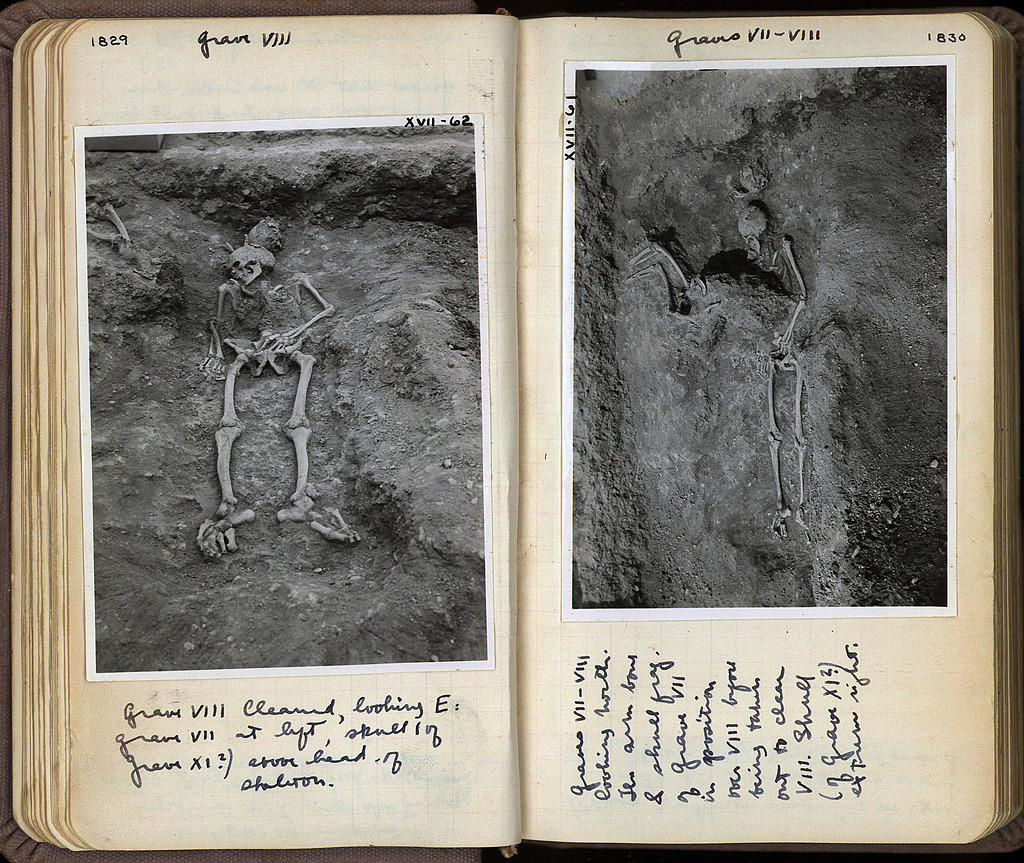 1829
Grave VIII
XVII-62
Grave VIII Cleaned, looking E:
grave VII at left, skull (of
grave XI?) above head of
skeleton.
Graves VII-VIII
1830
XVII-61
Graves VII-VIII
looking north.
The arm bone
& skull frag.
of Grave VII
in position
over VIII before
being taken
out to clear
VIII. Skull
(of Grave XI?)
extreme right.